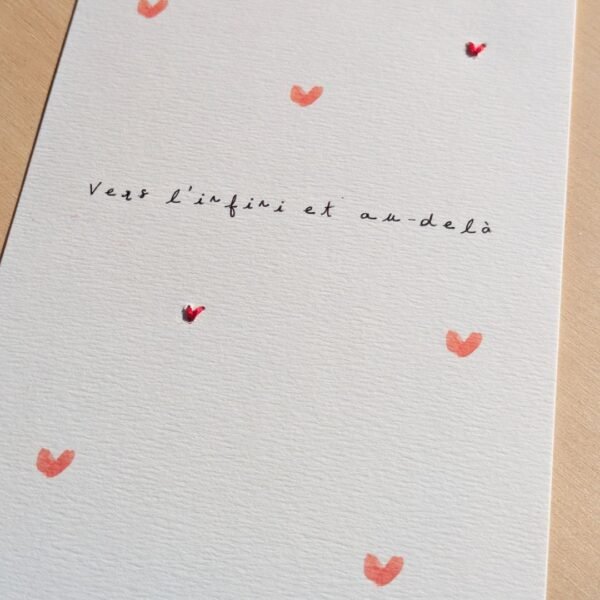 Vers l'infini et au-delà